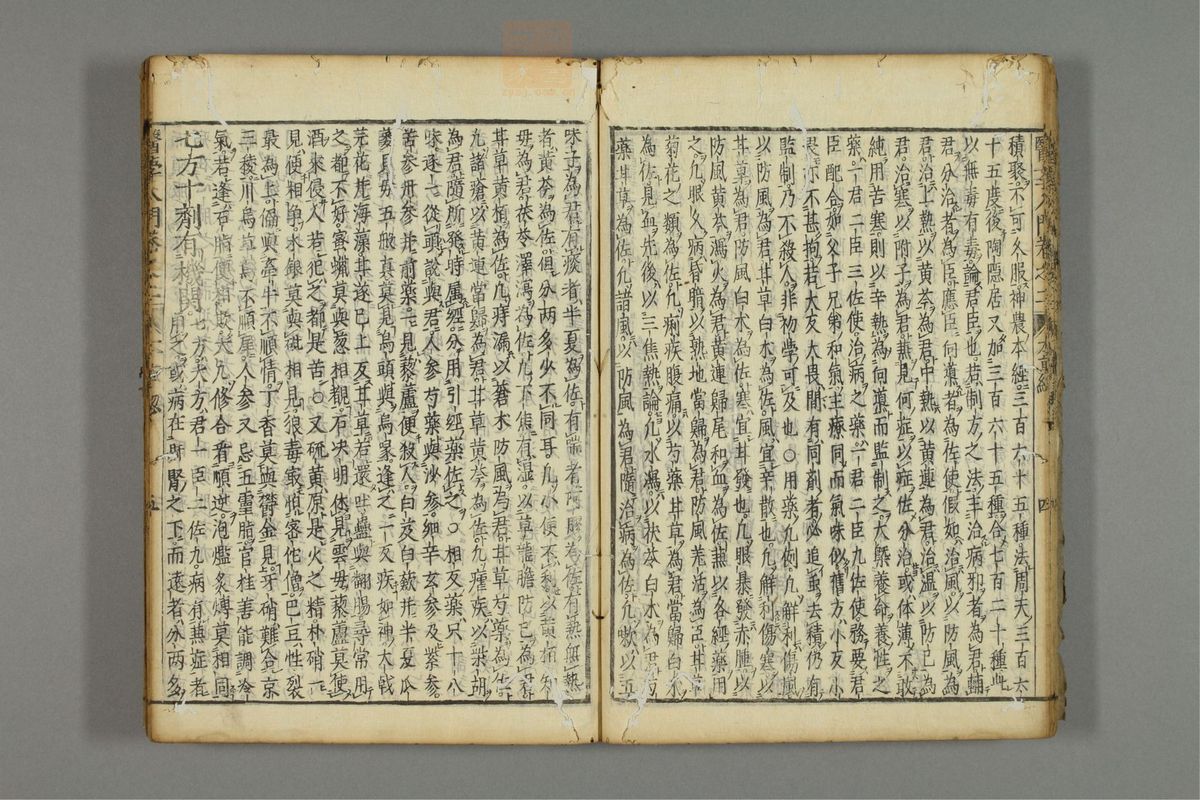 積聚不可久服神農本經三百六十五種法周天三百六
十五度後陶隱居又加三百六十五種合七百二十種此
以無毒有毒論君臣也若制方之法主治病邪者為君輔
君分治者為臣應臣向導者為佐使假如治風以防風為
君治寒以附子為君兼見何症以症佐分治或体薄不敢
君治上熱以黄芩為君中熱以黄連為君治温以防已為
純用苦寒則以辛熱為向導而監制之大槩養命養性之
藥一君二臣三佐使治病之藥一君二臣九佐使務要君
臣配合如父子兄弟和氣主療同而氣味似舊方小反小
畏亦不甚拘若大反大畏間有同剤者必追虫去積仍有
監制乃不殺人非初學可及也○用藥凡例凡解利傷風
以防風為君甘草白术為佐風宜辛散也凡解利傷寒以
甘草為君防風白术為佐寒宜甘發也凡眼暴發赤腫以
防風黄芩瀉火為君黄連歸尾和血為佐兼以各經藥用
之凡眼久病昏暗以熟地當歸為君防風羗活為臣甘草
菊花之類為佐凡痢疾腹痛以芍藥甘草為君當歸白术
為佐見血先後以三焦熱論凡水瀉以茯苓白术為君芍
藥甘草為佐凡諸風以防風為君隨治病為佐凡嗽以五
味子為君有痰者半夏為佐有喘者阿膠為佐有熱無熱
者黄芩為佐但分两多少不同耳凡小便不利以黄栢知
母為君茯苓澤瀉為佐凡下焦有湿以草龍膽防已為君
甘草黄栢為佐凡痔漏以蒼术防風為君甘草芍藥為佐
凡諸瘡以黄連當歸為君甘草黄芩為佐凡瘧疾以柴胡
為君隨所發時属經分用引經藥佐之○相反藥只十八
味逐一從頭說與君人参芍藥與沙参細辛玄参及紫参
苦参丹参并前藥一見藜蘆便殺人白芨白蘞并半夏瓜
蔞貝母五般真莫見烏頭與烏喙逢之一反疾如神大戟
芫花并海藻甘遂已上反甘草若還吐蠱與翻腸尋常用
之都不好宻蝋莫與葱相覩石决明休見雲母藜蘆莫使
酒來侵人若犯之都是苦○又硫黄原是火之精朴硝一
見便相爭水銀莫與砒相見狼毒最怕宻佗僧巴豆性裂
最為上偏與牽牛不順情丁香莫與欝金見牙硝難合京
三稜川烏草烏不順犀人参又忌五靈脂官桂善能調冷
氣若逢石脂便相欺大凡修合看順逆泡爁炙煿莫相同
七方十劑有機関七方大方君一臣二佐九病有兼症者
用之或病在肝腎之下而遠者分两多